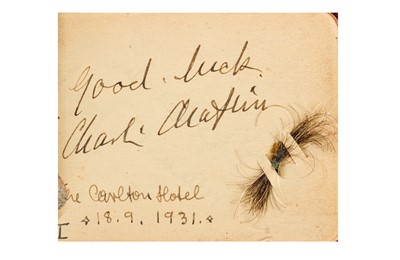 Good. luck.
Charlie Chaplin
The Carlton Hotel
18.9.1931.